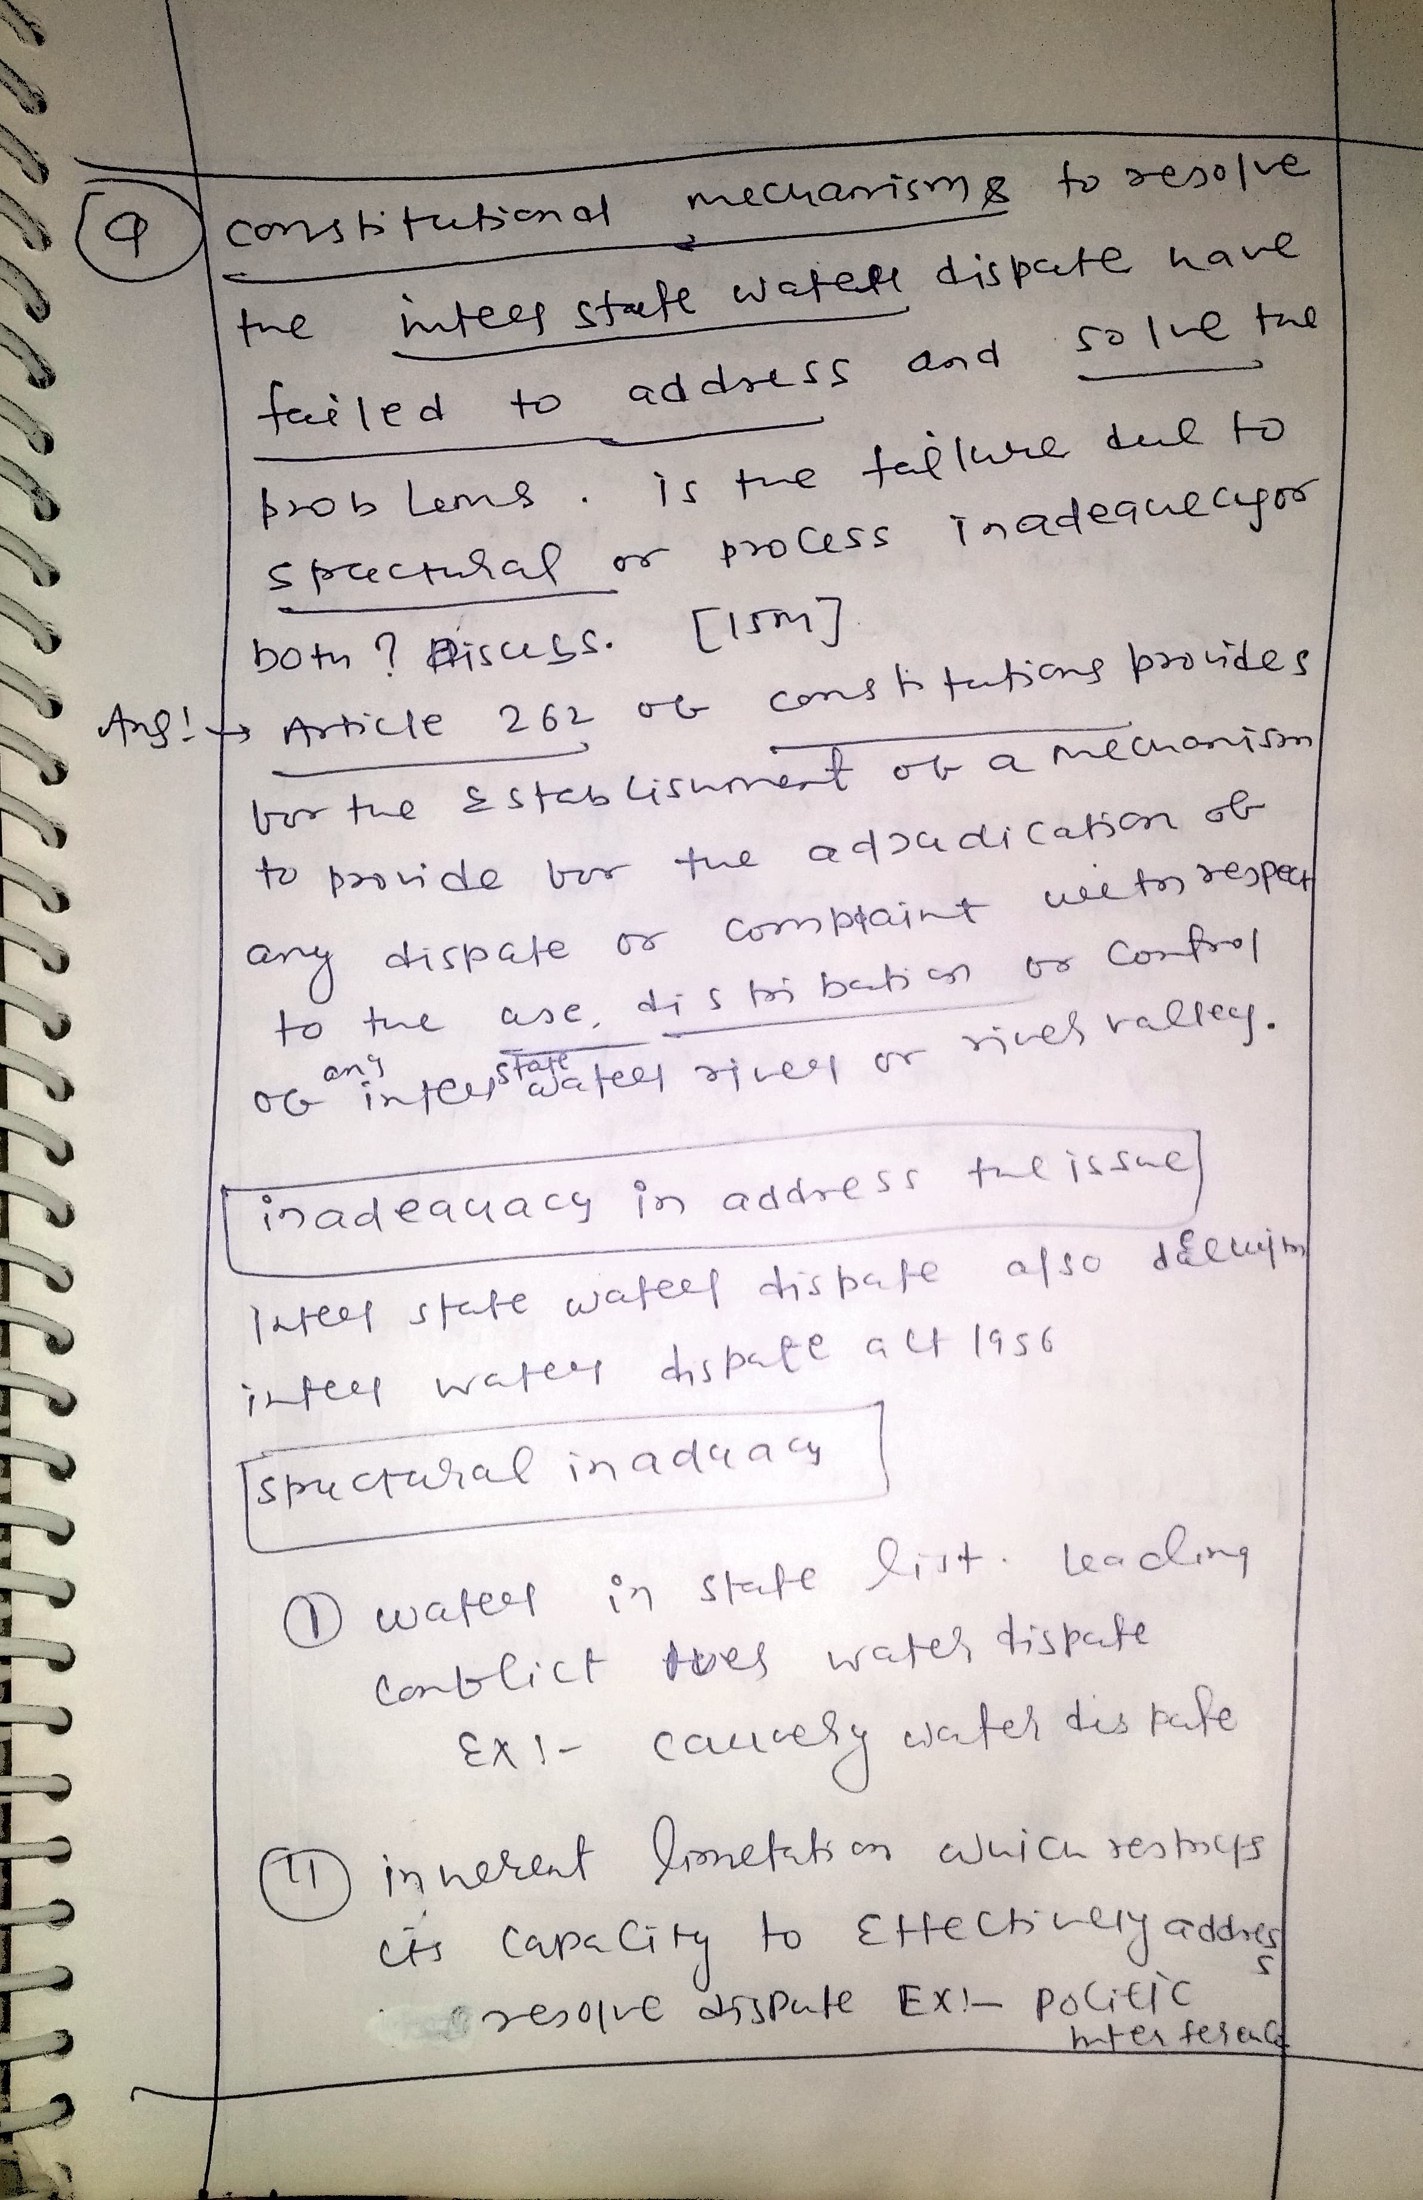 Q constitutional mechanisms to resolve
the inter state water dispute have
failed to address and solve the
problems. is the failure due to
structural or process inadequacy or
both? Discuss. [15m]
Ans:→ Article 262 of constitutions provides
for the Establishment of a mechanism
to provide for the adjudication of
any dispute or complaint with respect
to the use, distribution or control
of any inter state water river or river valley.
inadequacy in address the issue
Inter state water dispute also
inter water dispute act 1956
structural inaduacy
① water in state list. leading
conflict over water dispute
Ex:- cauvery water dispute
⑪ inherent limetation which restricts
its capacity to Effectively address
resolve dispute Ex:- politic
interference